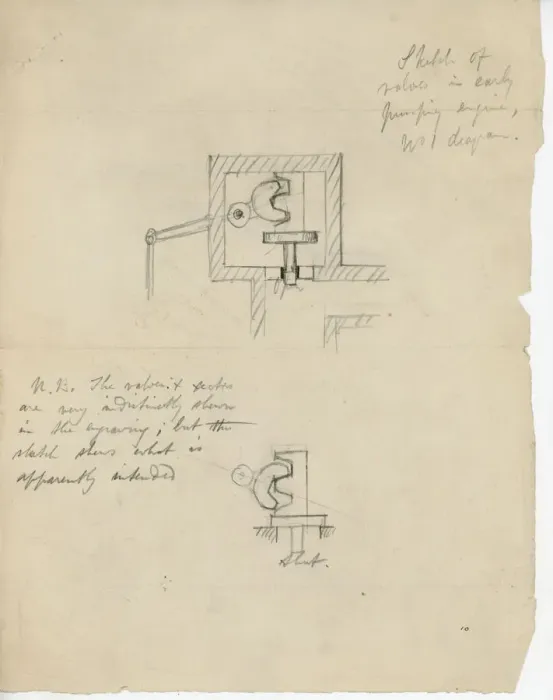 Sketch of
valves in early
pumping engine,
No 1 diagram.
N.B. The valves &
are very indistinctly shewn
in the engraving; but the
sketch shews what is
apparently intended
Shut.
10